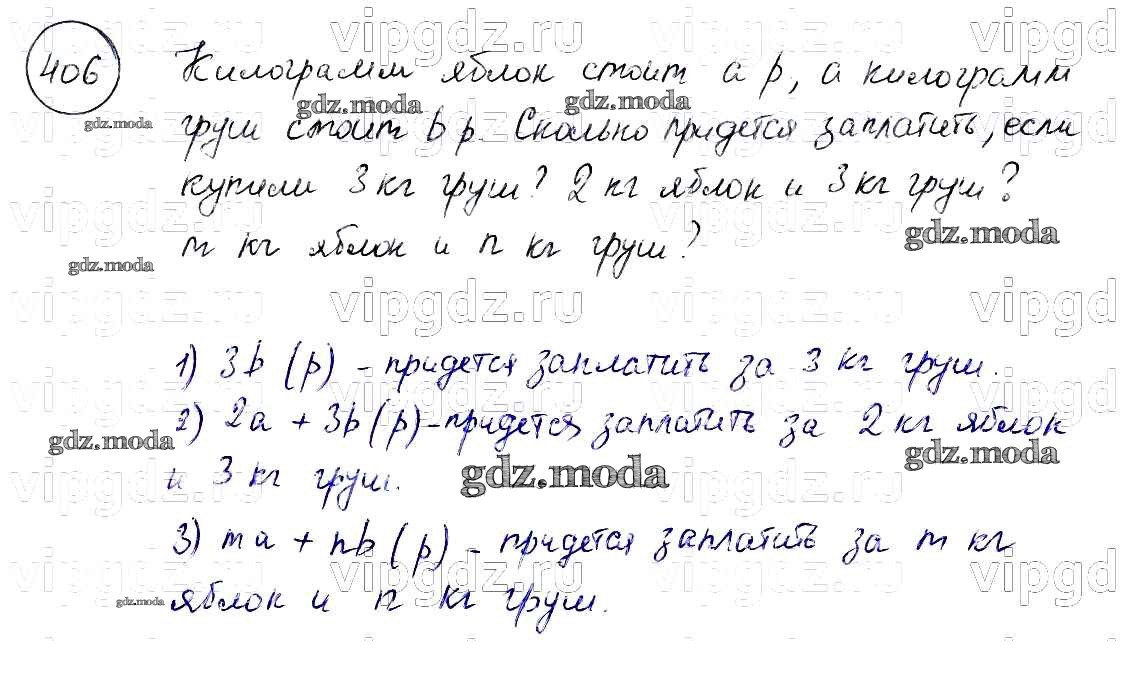 vipgdz.ru vipgdz.ru vipgdz.ru vipgd
406 Килограмм яблок стоит a р, а килограмм
gdz.moda gdz.moda
gdz.moda
груш стоит b р. Сколько придется заплатить, если
купили 3 кг груш? 2 кг яблок и 3 кг груш?
vipgdz.ru vipgdz.ru vipgdz.ru vipgd
gdz.moda
m кг яблок и n кг груш?
gdz.moda
vipgdz.ru vipgdz.ru vipgdz.ru vipgd
1) 3b (р) - придется заплатить за 3 кг груш.
2) 2a + 3b (р) - придется заплатить за 2 кг яблок
gdz.moda gdz.moda
и 3 кг груш.
gdz.moda
vipgdz.ru vipgdz.ru vipgdz.ru vipgd
3) ma + nb (р) - придется заплатить за m кг
vipgdz.ru vipgdz.ru vipgdz.ru vipgd
gdz.moda
яблок и n кг груш.